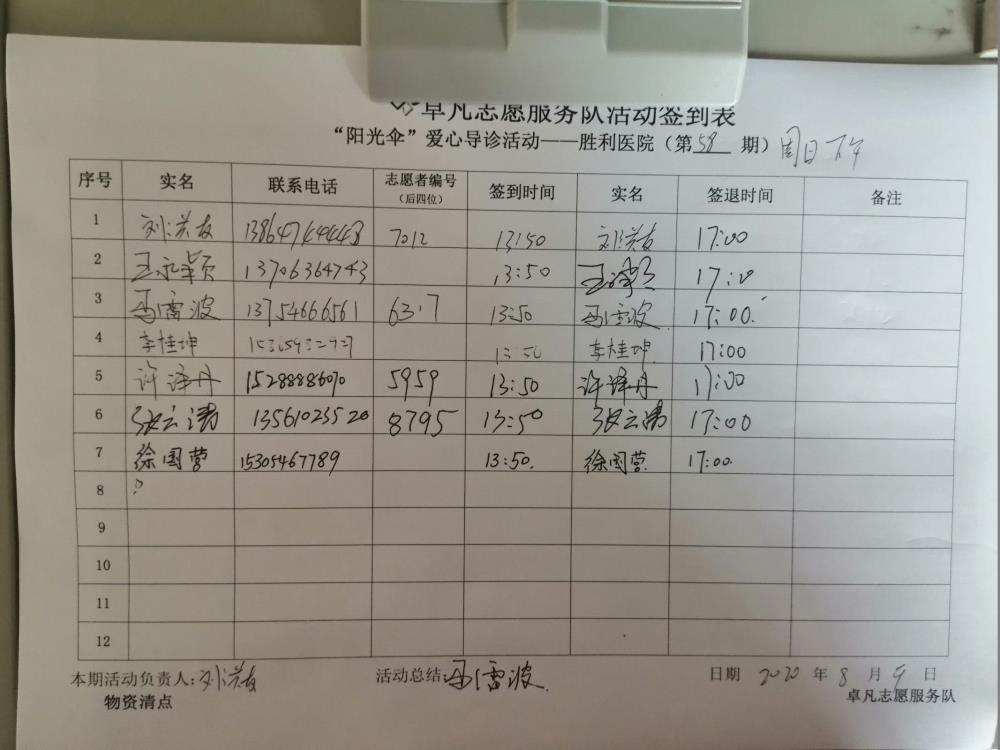 卓凡志愿服务队活动签到表
“阳光伞”爱心导诊活动——胜利医院（第58期）周日下午
序号 实名 联系电话 志愿者编号（后四位） 签到时间 实名 签退时间 备注
1 刘洪友 13864744448 7012 13:50 刘洪友 17:00
2 王永颖 13706364743 13:50 17:00
3 马雷波 13754666561 6317 13:50 马雷波 17:00
4 李桂坤 13:50 李桂坤 17:00
5 许译丹 15288886070 5959 13:50 许译丹 17:00
6 张云涛 13561023520 8795 13:50 张云涛 17:00
7 徐国营 15305467789 13:50. 徐国营 17:00.
8
9
10
11
12
本期活动负责人:刘洪友 活动总结:马雷波 日期 2020 年 8 月 9 日
物资清点 卓凡志愿服务队